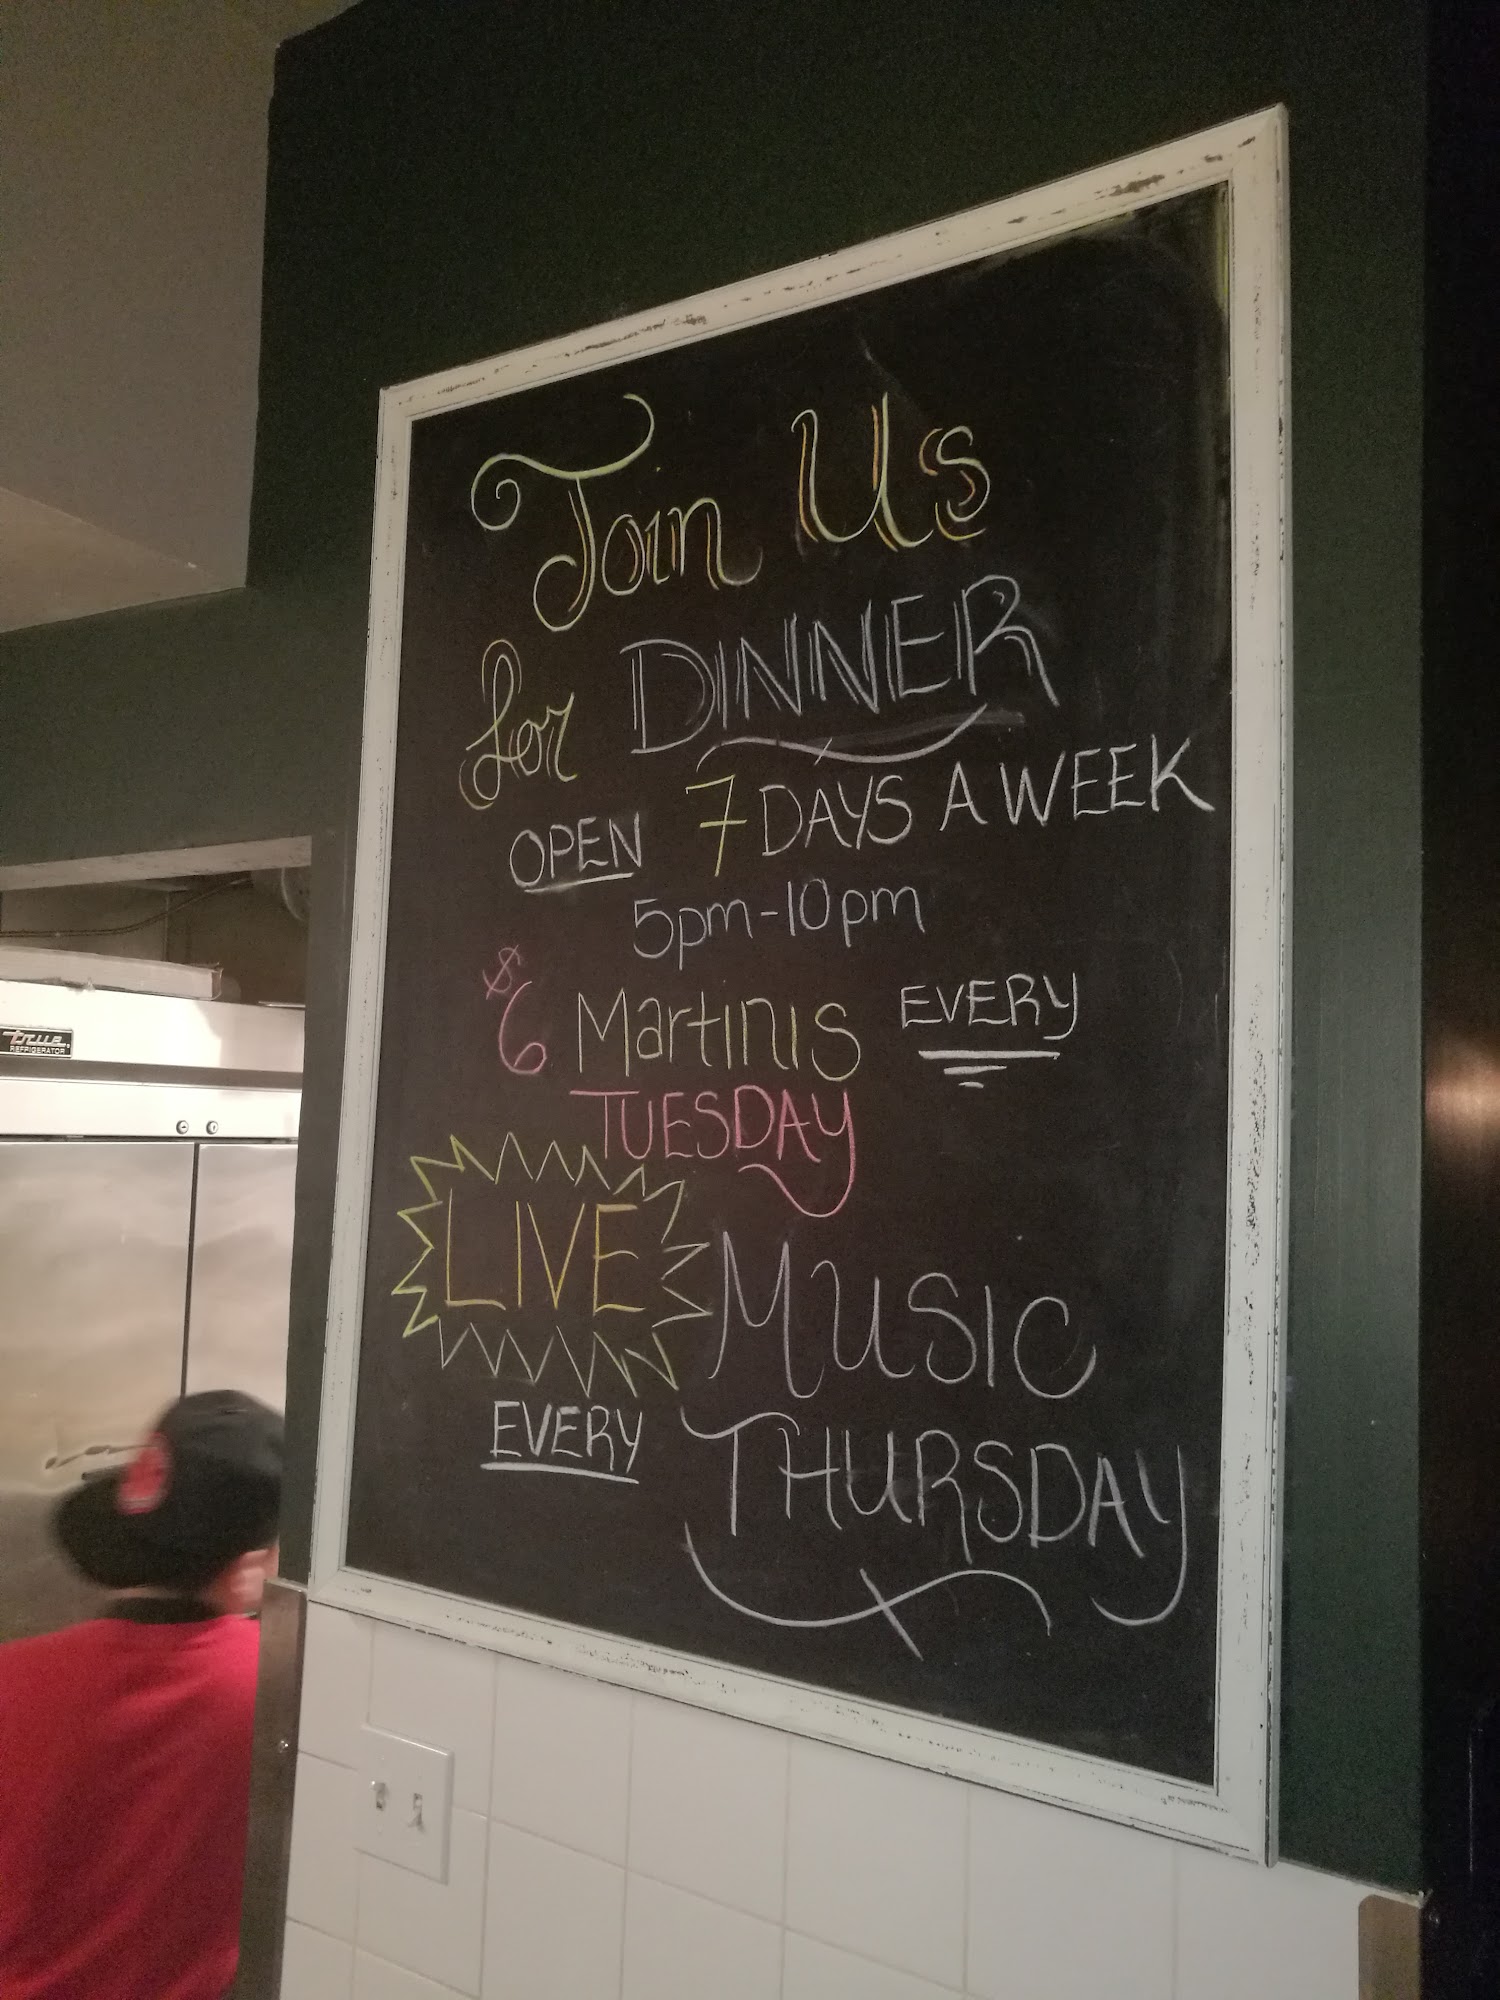 Join Us
for DINNER
OPEN 7 DAYS A WEEK
5pm-10pm
$6 Martinis EVERY
TUESDAY
LIVE MUSIC
EVERY THURSDAY
true
REFRIGERATOR